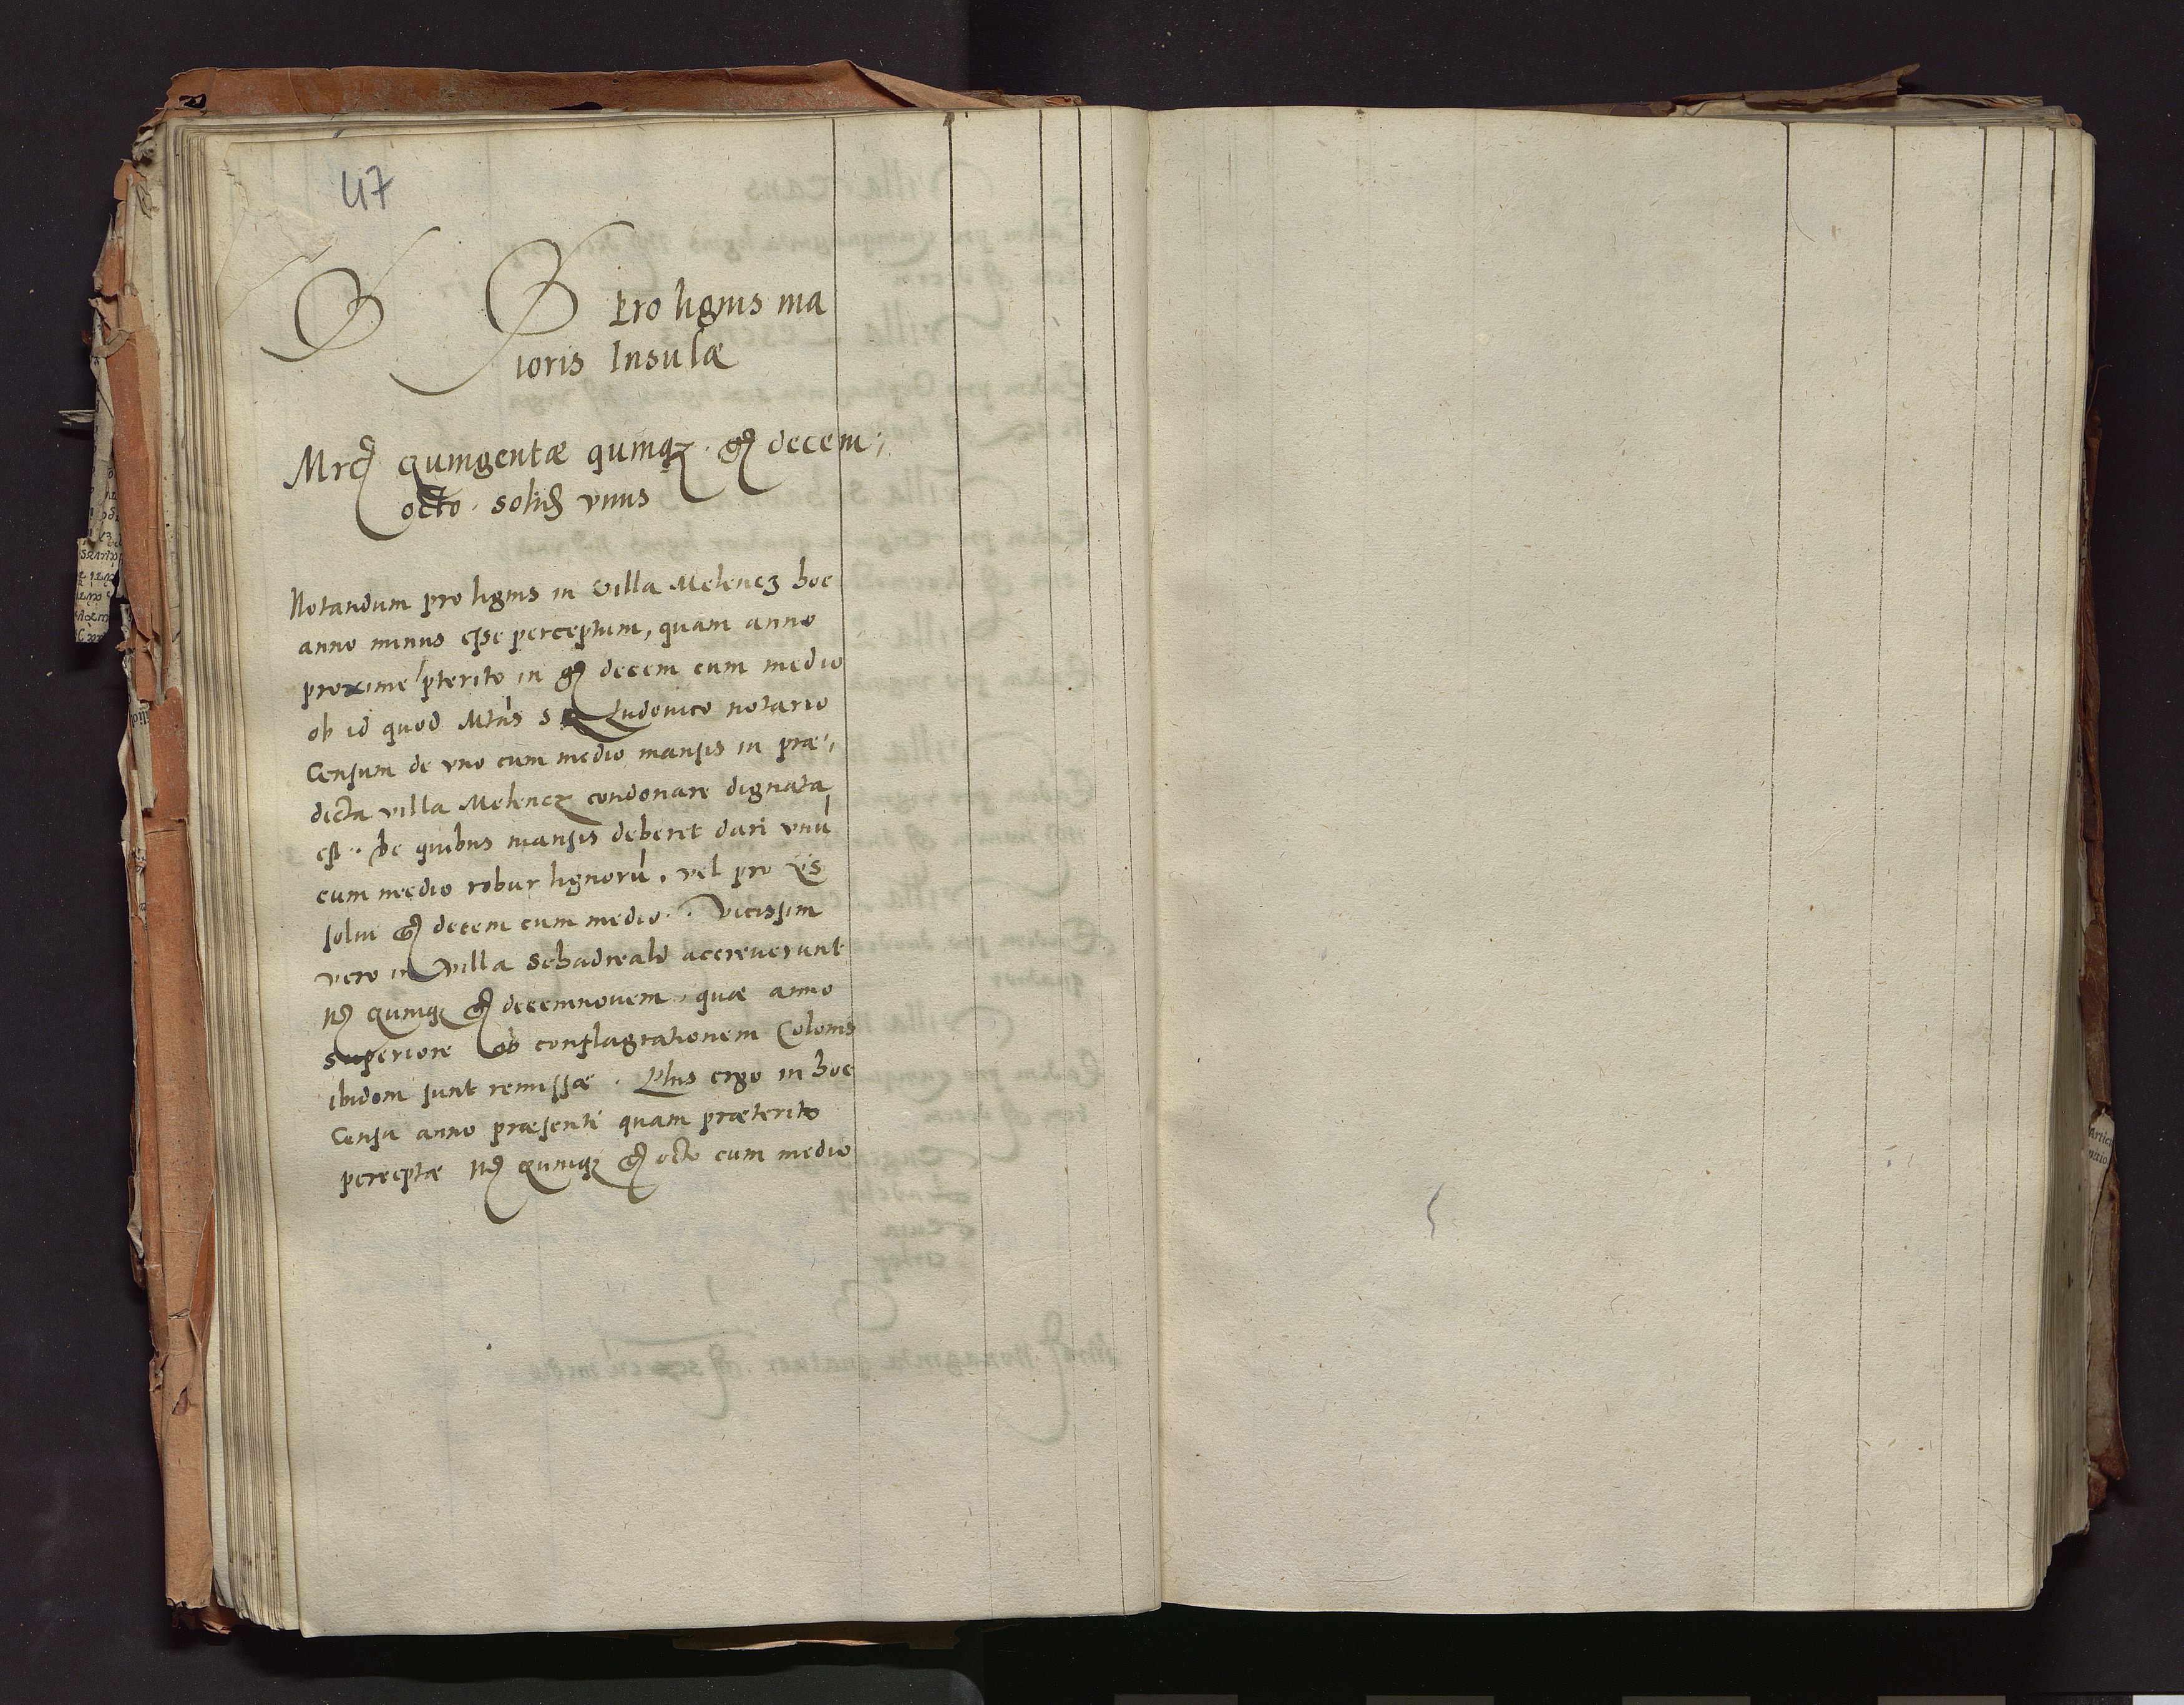 47
Pro lignis ma
ioris Insulæ
Mrc quingentæ quinqꝫ gr decem,
octo. solid vnus
Notandum pro lignis in villa Melencz hoc
anno minus esse perceptum, quam anno
proxime pterito in gr decem cum medio
ob id quod Mtas S Ludouico notario
Censum de vno cum medio mansis in præ,
dicta villa Melencz condonare dignata
est. De quibus mansis deberet dari vnū
cum medio robur lignorū, vel pro ijs
solui gr decem cum medio. Vicissim
vero in villa Schadwald accreuerunt
mr quinqꝫ gr decemnouem, quæ anno
superiore ob conflagrationem Colonis
ibidem sunt remissæ. Plus ergo in hoc
Censu anno præsenti quam præterito
perceptæ mr quinqꝫ gr octo cum medio